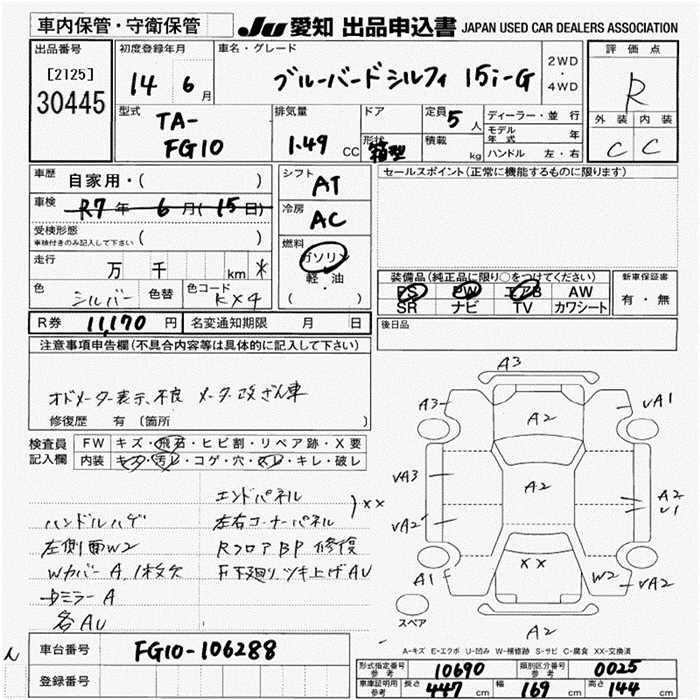 車内保管・守衛保管
JU 愛知 出品申込書 JAPAN USED CAR DEALERS ASSOCIATION
出品番号
[2125]
30445
初度登録年月
14 6月
車名・グレード
ブルーバードシルフィ 15i-G
2WD
・
4WD
評価点
R
外装 内装
C C
型式
TA-
FG10
排気量
1.49 CC
ドア
形状
箱型
定員 5人
積載 kg
ディーラー・並行
モデル年式 年
ハンドル 左・右
車歴 自家用・( )
車検 R7年 6月(15日)
受検形態
車検付きのみ記入して下さい ( )
走行 万 千 km
色 シルバー 色替 色コード KX4
シフト AT
冷房 AC
燃料
ガソリン
軽・油
( )
セールスポイント(正常に機能するものに限ります)
装備品(純正品に限り○をつけてください)
PS PW エアB AW
SR ナビ TV カワシート
新車保証書
有・無
R券 11,170 円 名変通知期限 月 日
後日品
注意事項申告欄(不具合内容等は具体的に記入して下さい)
オドメーター表示不良 メーター改ざん車
修復歴 有 〔箇所 〕
検査員記入欄
FW キズ・飛石・ヒビ割・リペア跡・X要
内装 キズ・汚レ・コゲ・穴・スレ・キレ・破レ
エンドパネル
ハンドルハゲ 左右コーナーパネル )××
左側面W2 RフロアBP 修復
WカバーA 1枚欠 F下廻リツキ上げAU
ミラーA
各AU
A3
A3
VA1
A2
VA3
A2
A2
U1
VA2
××
A1
W2
VA2
スペア
A2
A-キズ E-エクボ U-凹み W-補修跡 S-サビ C-腐食 XX-交換済
車台番号 FG10-106288
登録番号
形式指定番号 参考 10690 類別区分番号 参考 0025
車庫証明用 参考 長さ 447 cm 幅 169 cm 高さ 144 cm